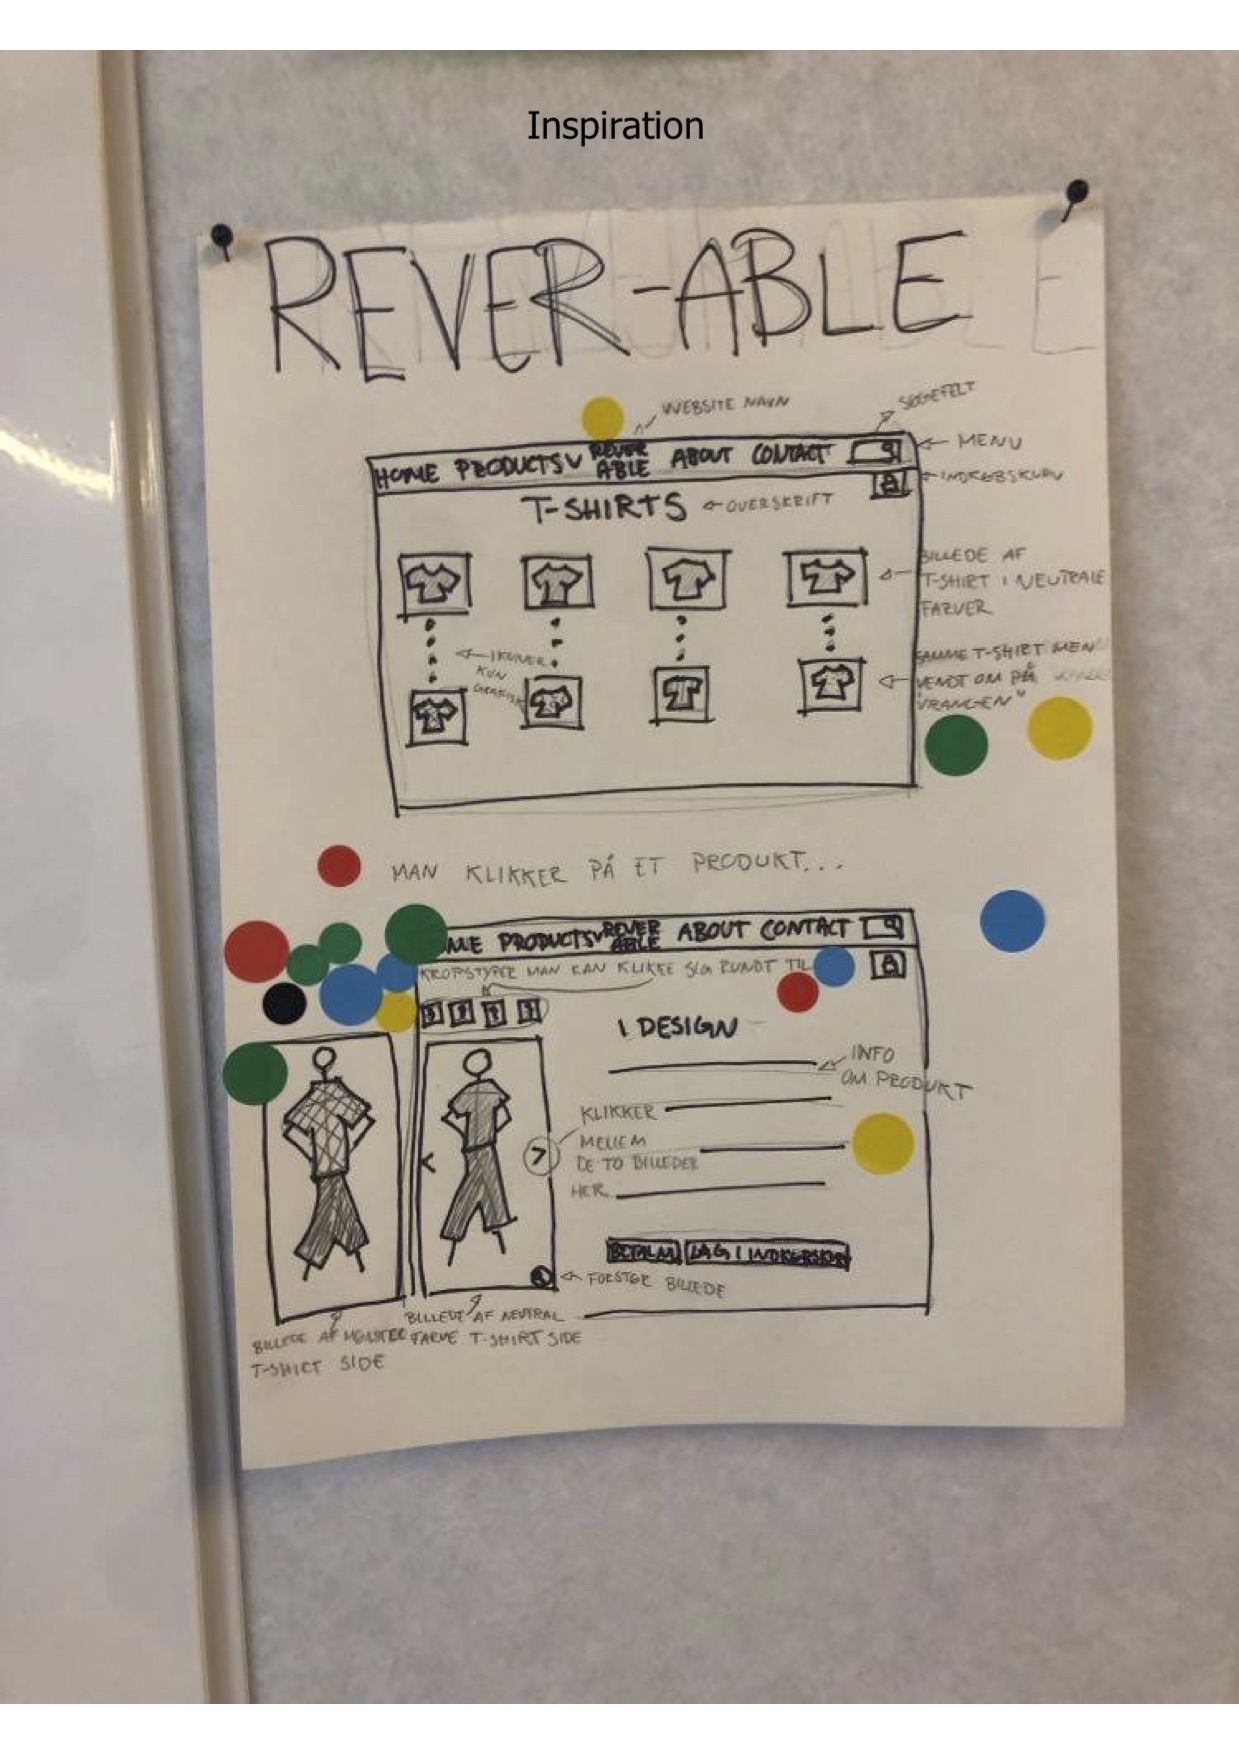 Inspiration
REVER-ABLE
WEBSITE NAVN
SØGEFELT
MENU
HOME PRODUCTS REVER ABLE ABOUT CONTACT
INDKØBSKURV
T-SHIRTS
OVERSKRIFT
BILLEDE AF
T-SHIRT I NEUTRALE
FARVER
IKONER
KUN
GRAFISK
SAMME T-SHIRT MEN
VENDT OM PÅ
"VRANGEN"
MAN KLIKKER PÅ ET PRODUKT...
ME PRODUCTS REVER ABLE ABOUT CONTACT
KROPSTYPER MAN KAN KLIKKE SIG RUNDT TIL
1 DESIGN
INFO
OM PRODUKT
KLIKKER
MELLEM
DE TO BILLEDER
HER
< >
BETALING LÆG I INDKØBSKURV
FORSTØR BILLEDE
BILLEDE AF NEUTRAL
FARVE T-SHIRT SIDE
BILLEDE AF MØNSTER
T-SHIRT SIDE